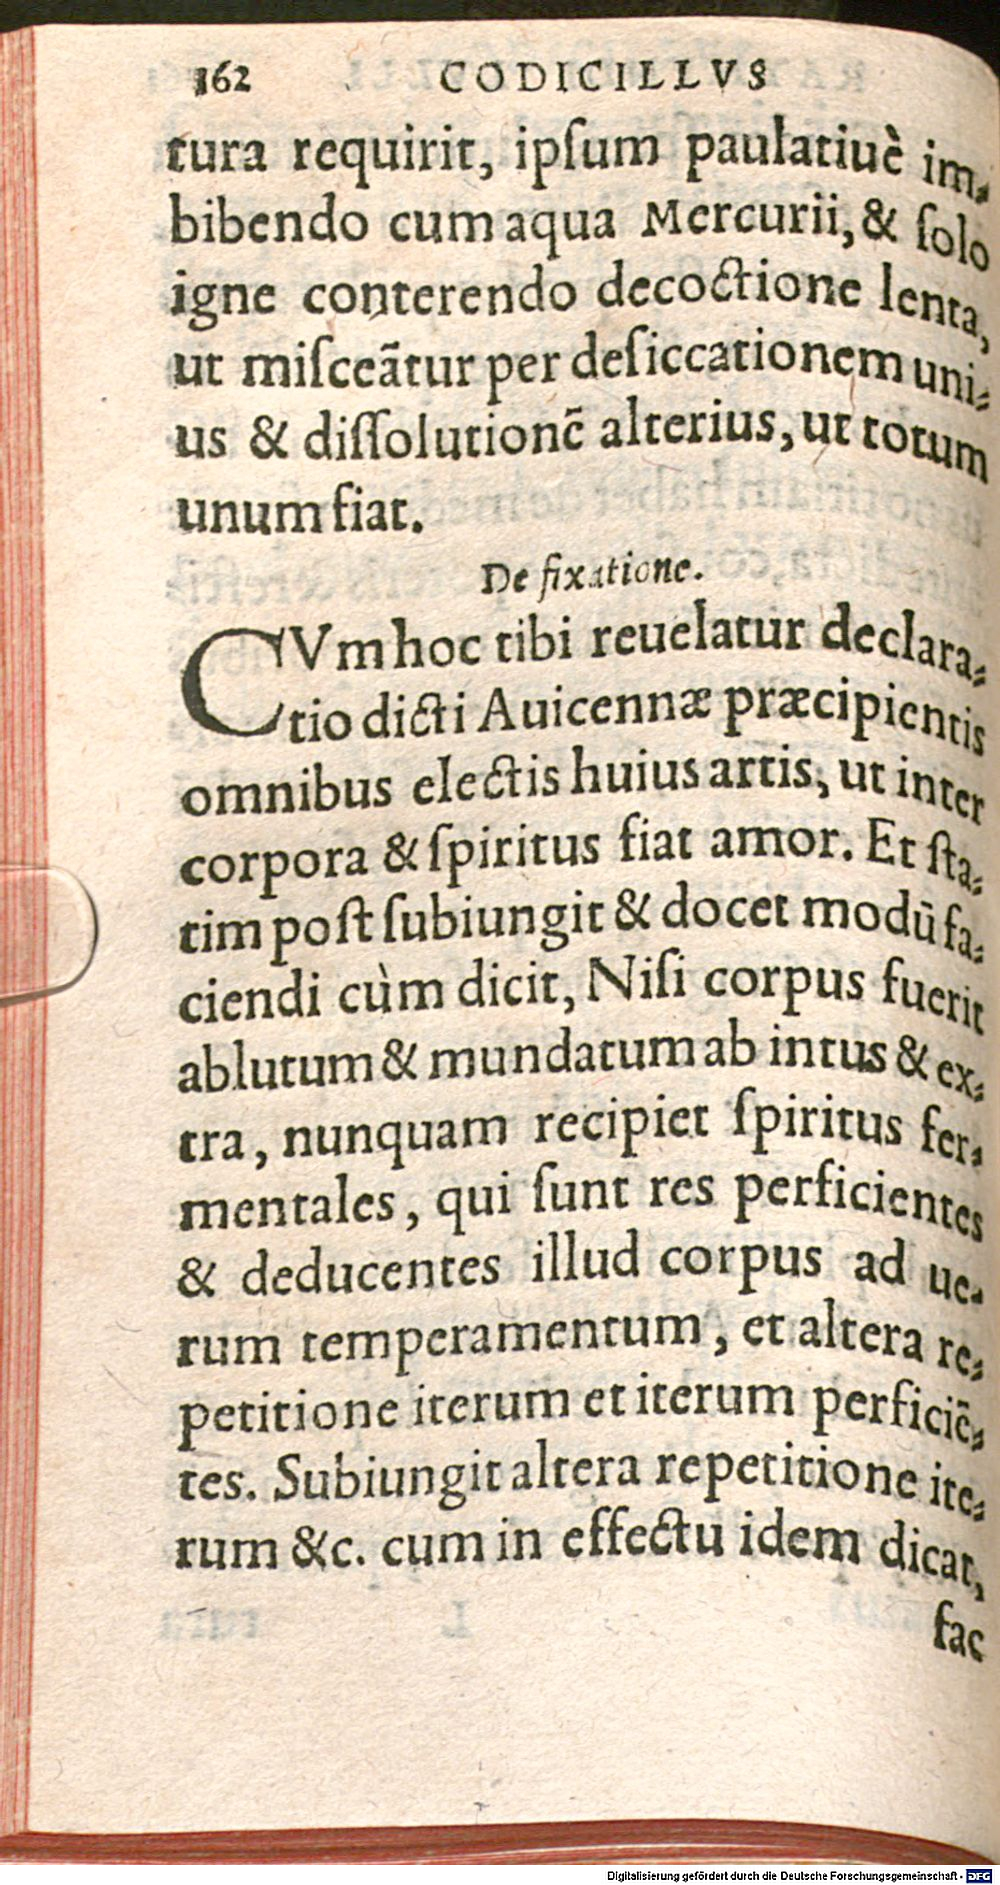 162 CODICILLVS
tura requirit, ipſum paulatiuè im⸗
bibendo cum aqua Mercurii, & ſolo
igne conterendo decoctione lenta,
ut miſceãtur per deſiccationem uni⸗
us & diſſolutionẽ alterius, ut totum
unum fiat.
De fixatione.
CVm hoc tibi reuelatur declara⸗
tio dicti Auicennæ præcipientis
omnibus electis huius artis, ut inter
corpora & ſpiritus fiat amor. Et ſta⸗
tim poſt ſubiungit & docet modũ fa⸗
ciendi cùm dicit, Niſi corpus fuerit
ablutum & mundatum ab intus & ex⸗
tra, nunquam recipiet ſpiritus fer⸗
mentales, qui ſunt res perficientes
& deducentes illud corpus ad ue⸗
rum temperamentum, et altera re⸗
petitione iterum et iterum perficiẽ⸗
tes. Subiungit altera repetitione ite⸗
rum &c. cum in effectu idem dicat,
fac
Digitalisierung gefördert durch die Deutsche Forschungsgemeinschaft - DFG